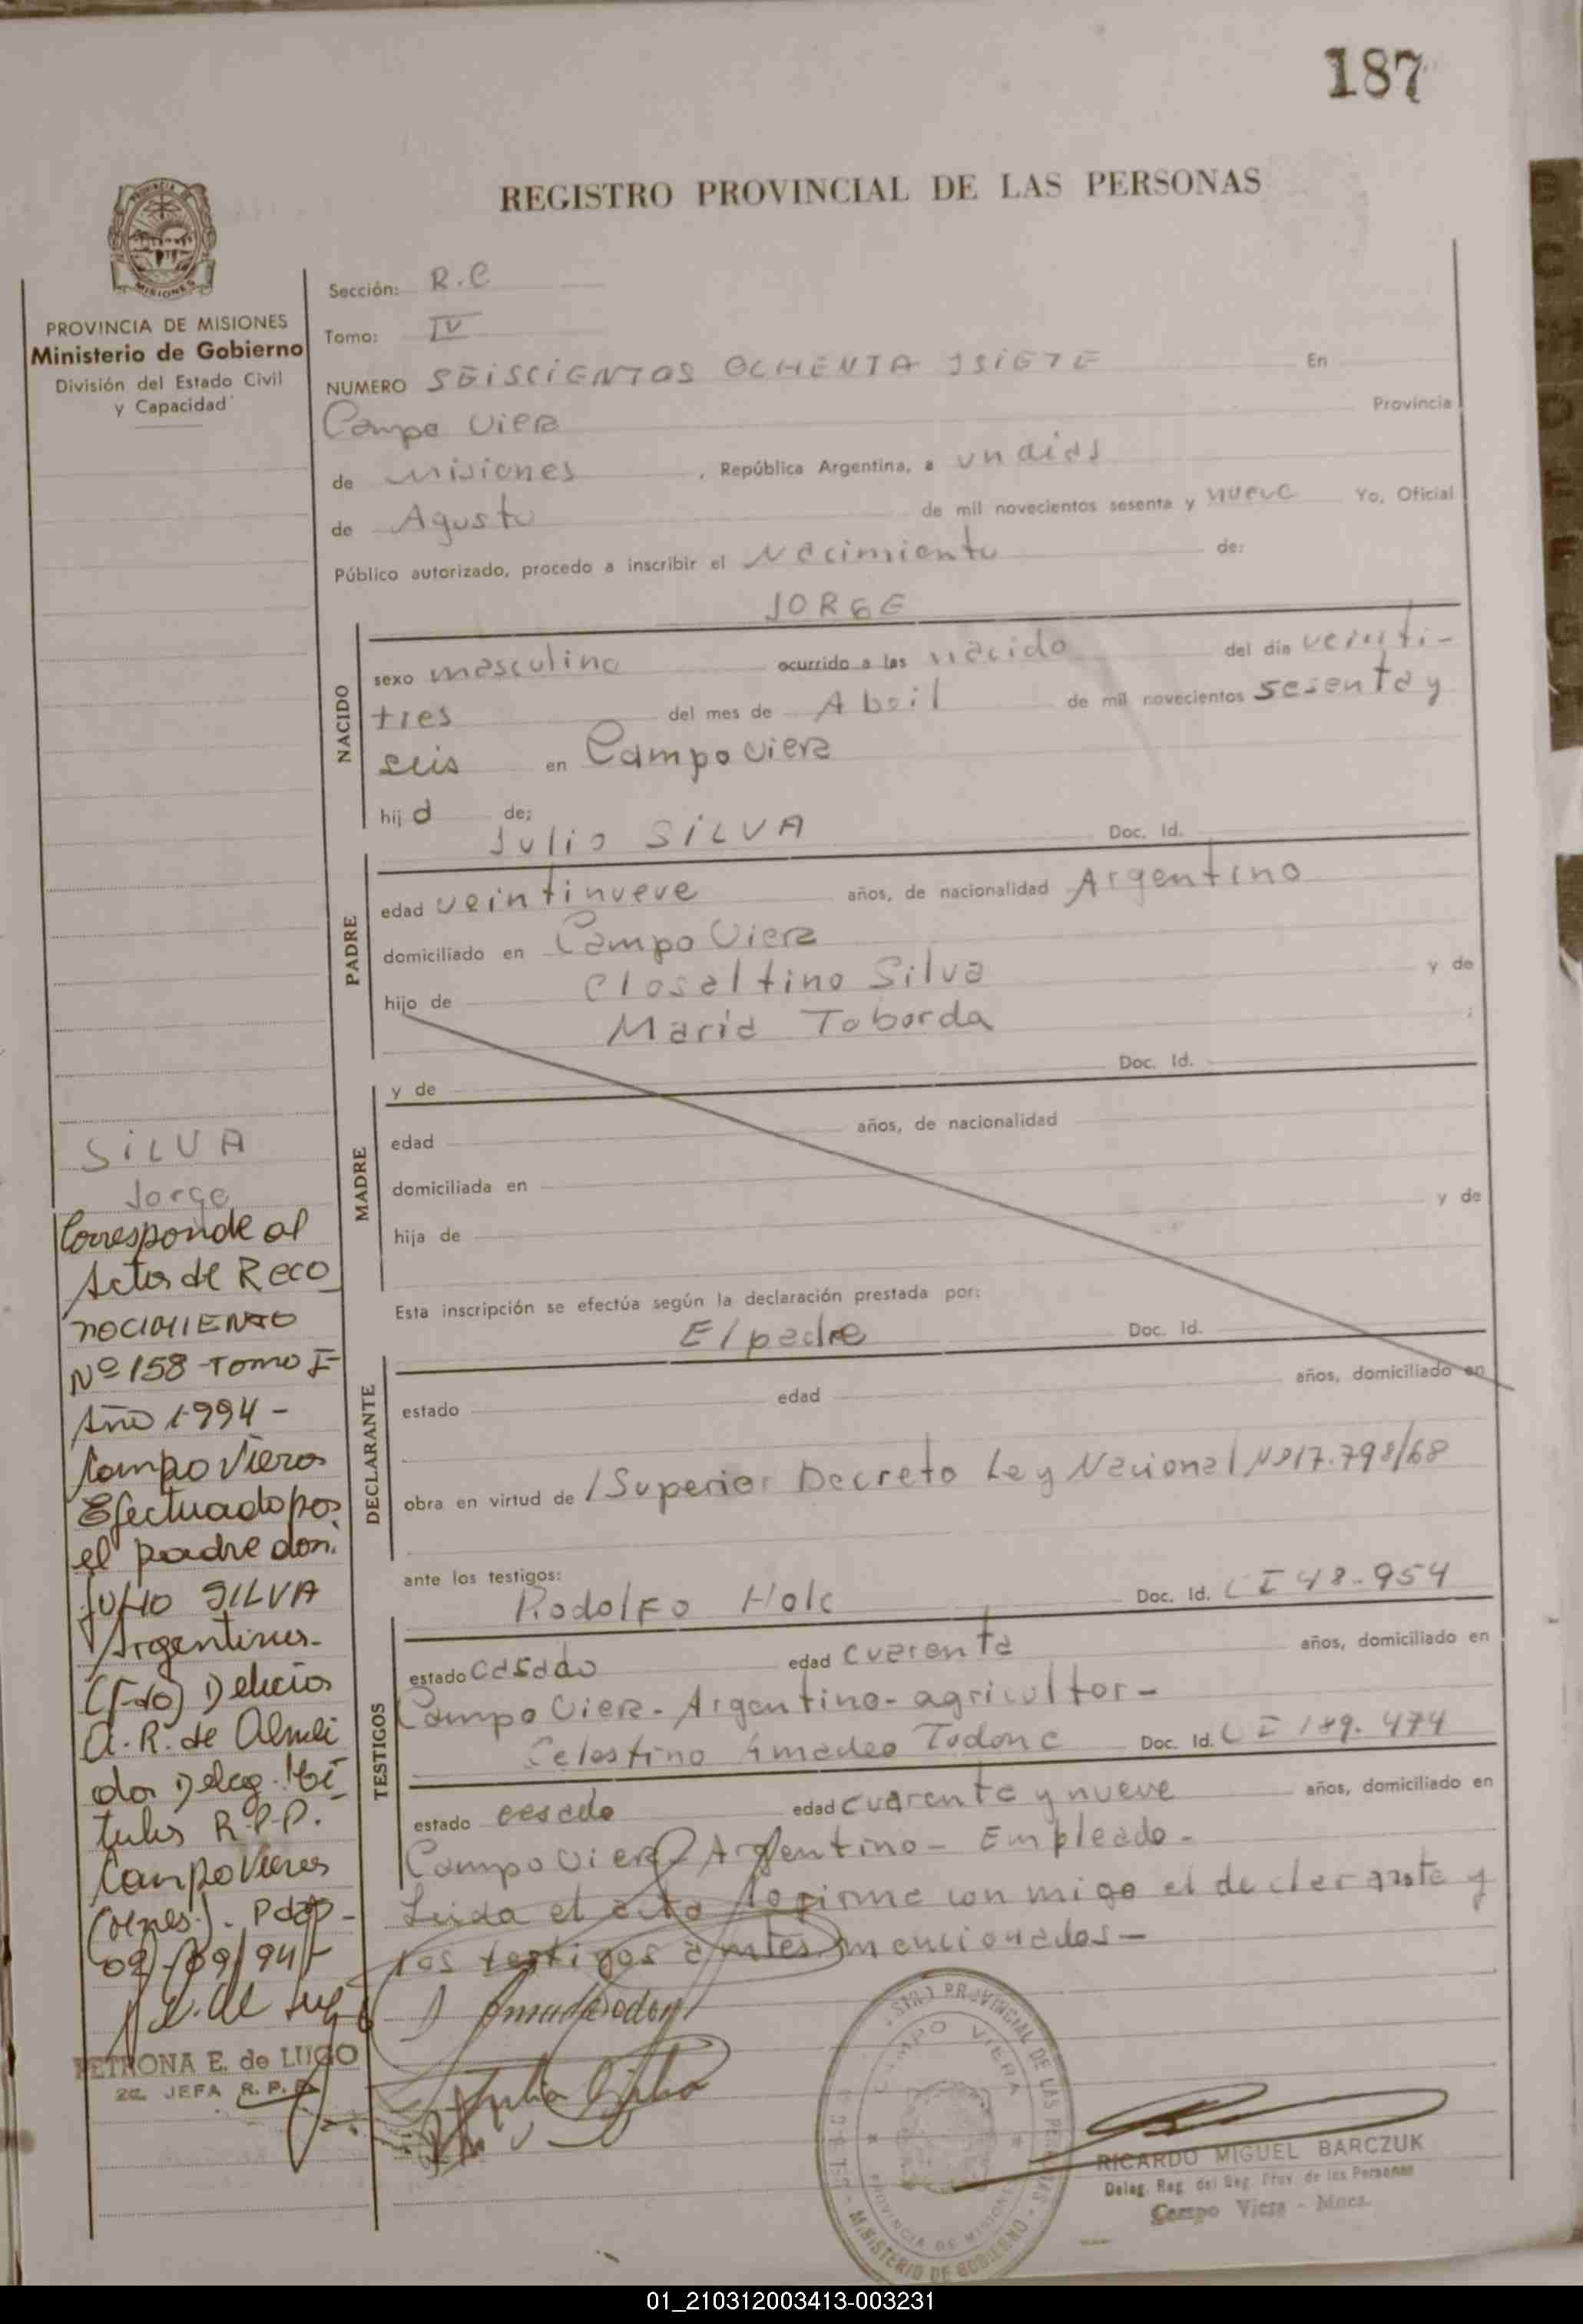 187
REGISTRO PROVINCIAL DE LAS PERSONAS
MISIONES
PROVINCIA DE MISIONES
Ministerio de Gobierno
División del Estado Civil
y Capacidad
Sección: R.C
Tomo: IV
NUMERO SEISCIENTOS OCHENTA YSIETE En
Campo Viera Provincia
de Misiones, República Argentina, a un dias
de Agosto de mil novecientos sesenta y nueve Yo, Oficial
Público autorizado, procedo a inscribir el Nacimiento de:
JORGE
NACIDO
sexo masculino ocurrido a las nacido del día veinti-
tres del mes de Abril de mil novecientos sesenta y
seis en Campo Viera
hijo de;
Julio SILVA Doc. Id.
PADRE
edad veintinueve años, de nacionalidad Argentino
domiciliado en Campo Viera
hijo de Closaltino Silva y de
Maria Taborda ;
MADRE
y de Doc. Id.
edad años, de nacionalidad
domiciliada en
hija de y de
Esta inscripción se efectúa según la declaración prestada por:
El padre Doc. Id.
DECLARANTE
estado edad años, domiciliado en
obra en virtud de /Superior Decreto Ley Nacional Nº17.798/68
ante los testigos:
TESTIGOS
Rodolfo Holc Doc. Id. CI 48.954
estado casado edad cuarenta años, domiciliado en
Campo Viera - Argentino - agricultor -
Celestino Amadeo Todone Doc. Id. CI 189.474
estado casado edad cuarenta y nueve años, domiciliado en
Campo Viera Argentino - Empleado -
Leida el acta la firma con migo el declarante y
los testigos antes mencionados -
SILVA
Jorge
Corresponde al
Acta de Reco
NOCIMIENTO
Nº 158 - Tomo I -
Año 1994 -
Campo Viera
Efectuado por
el padre don:
JULIO SILVA
Argentino -
(Fdo) Delicia
A. R. de Almei
da Deleg. Ti
tular R.P.P.
Campo Viera
(Mnes). Pdas -
02/09/94
PETRONA E. de LUGO
2a. JEFA R. P. P.
Julio Silva
REGISTRO PROVINCIAL DE LAS PERSONAS
CAMPO VIERA
PROVINCIA DE MISIONES
MINISTERIO DE GOBIERNO
RICARDO MIGUEL BARCZUK
Deleg. Reg. del Reg. Prov. de las Personas
Campo Viera - Mnes.
01_210312003413-003231